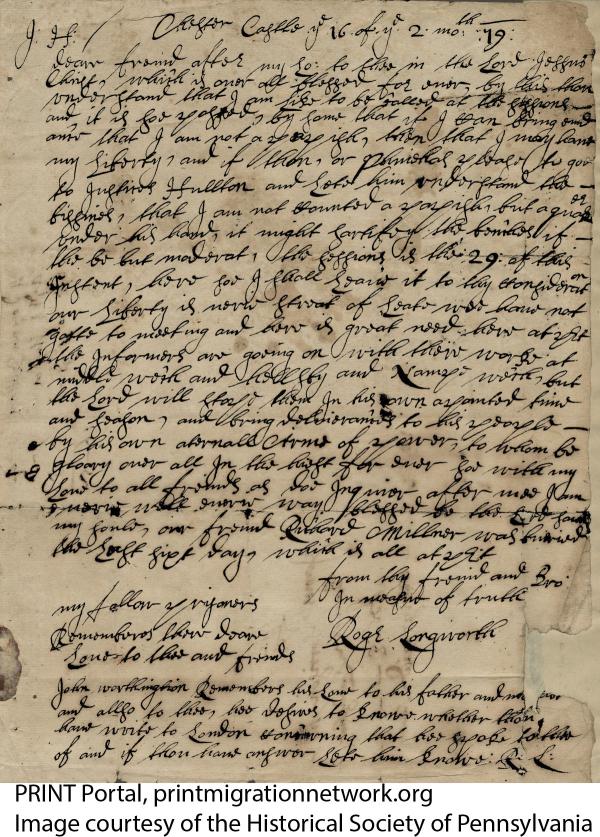 J. H: Chester Castle ye 16 of ye 2. moth 79:
deare freind after my lo: to thee in the Lord Jessus
Christ, which is over all blessed for ever, by this thou
understand that I am like to be called at the sessions
and it is soe, by some that if I Can bring
that I am not a papish, then that I may have
my liberty, and if thou, or please to goe
to Justices and lete him understand the
bissines, that I am not Counted a papish, but a quaker
under his hand, it might sartifey the benches if
the be but moderat, the sessions is the 29: of this
Instent, here soe I shall leave it to thy Considerat ion
our liberty is verie streat of leate wee have not
gotte to meeting and here is great need here at
the Informers are going on with there worke at
middle wech and and wech, but
the Lord will stope them In his own apanted time
and season, and bring deliverances to his people
by his own aternall Arme of power, to whom be
gloary over all In the for ever soe with my
love to all freinds as doe Inquier after mee I am
verie well everie way blessed be the Lord
my soule, our freind Richard Millner was buried
the last sixt day, which is all at
from thy freind and Bro:
my fellow prisoners In of truth
Remembers there deare Rogr Longworth
Love to thee and freinds
John worthington Remembers his love to his father and mo
and allso to thee, hee desires to knowe whether thou
have write to London Conserning that hee spoke to thee
of and if thou have answer lete him knowe: R: L:
PRINT Portal, printmigrationnetwork.org
Image courtesy of the Historical Society of Pennsylvania